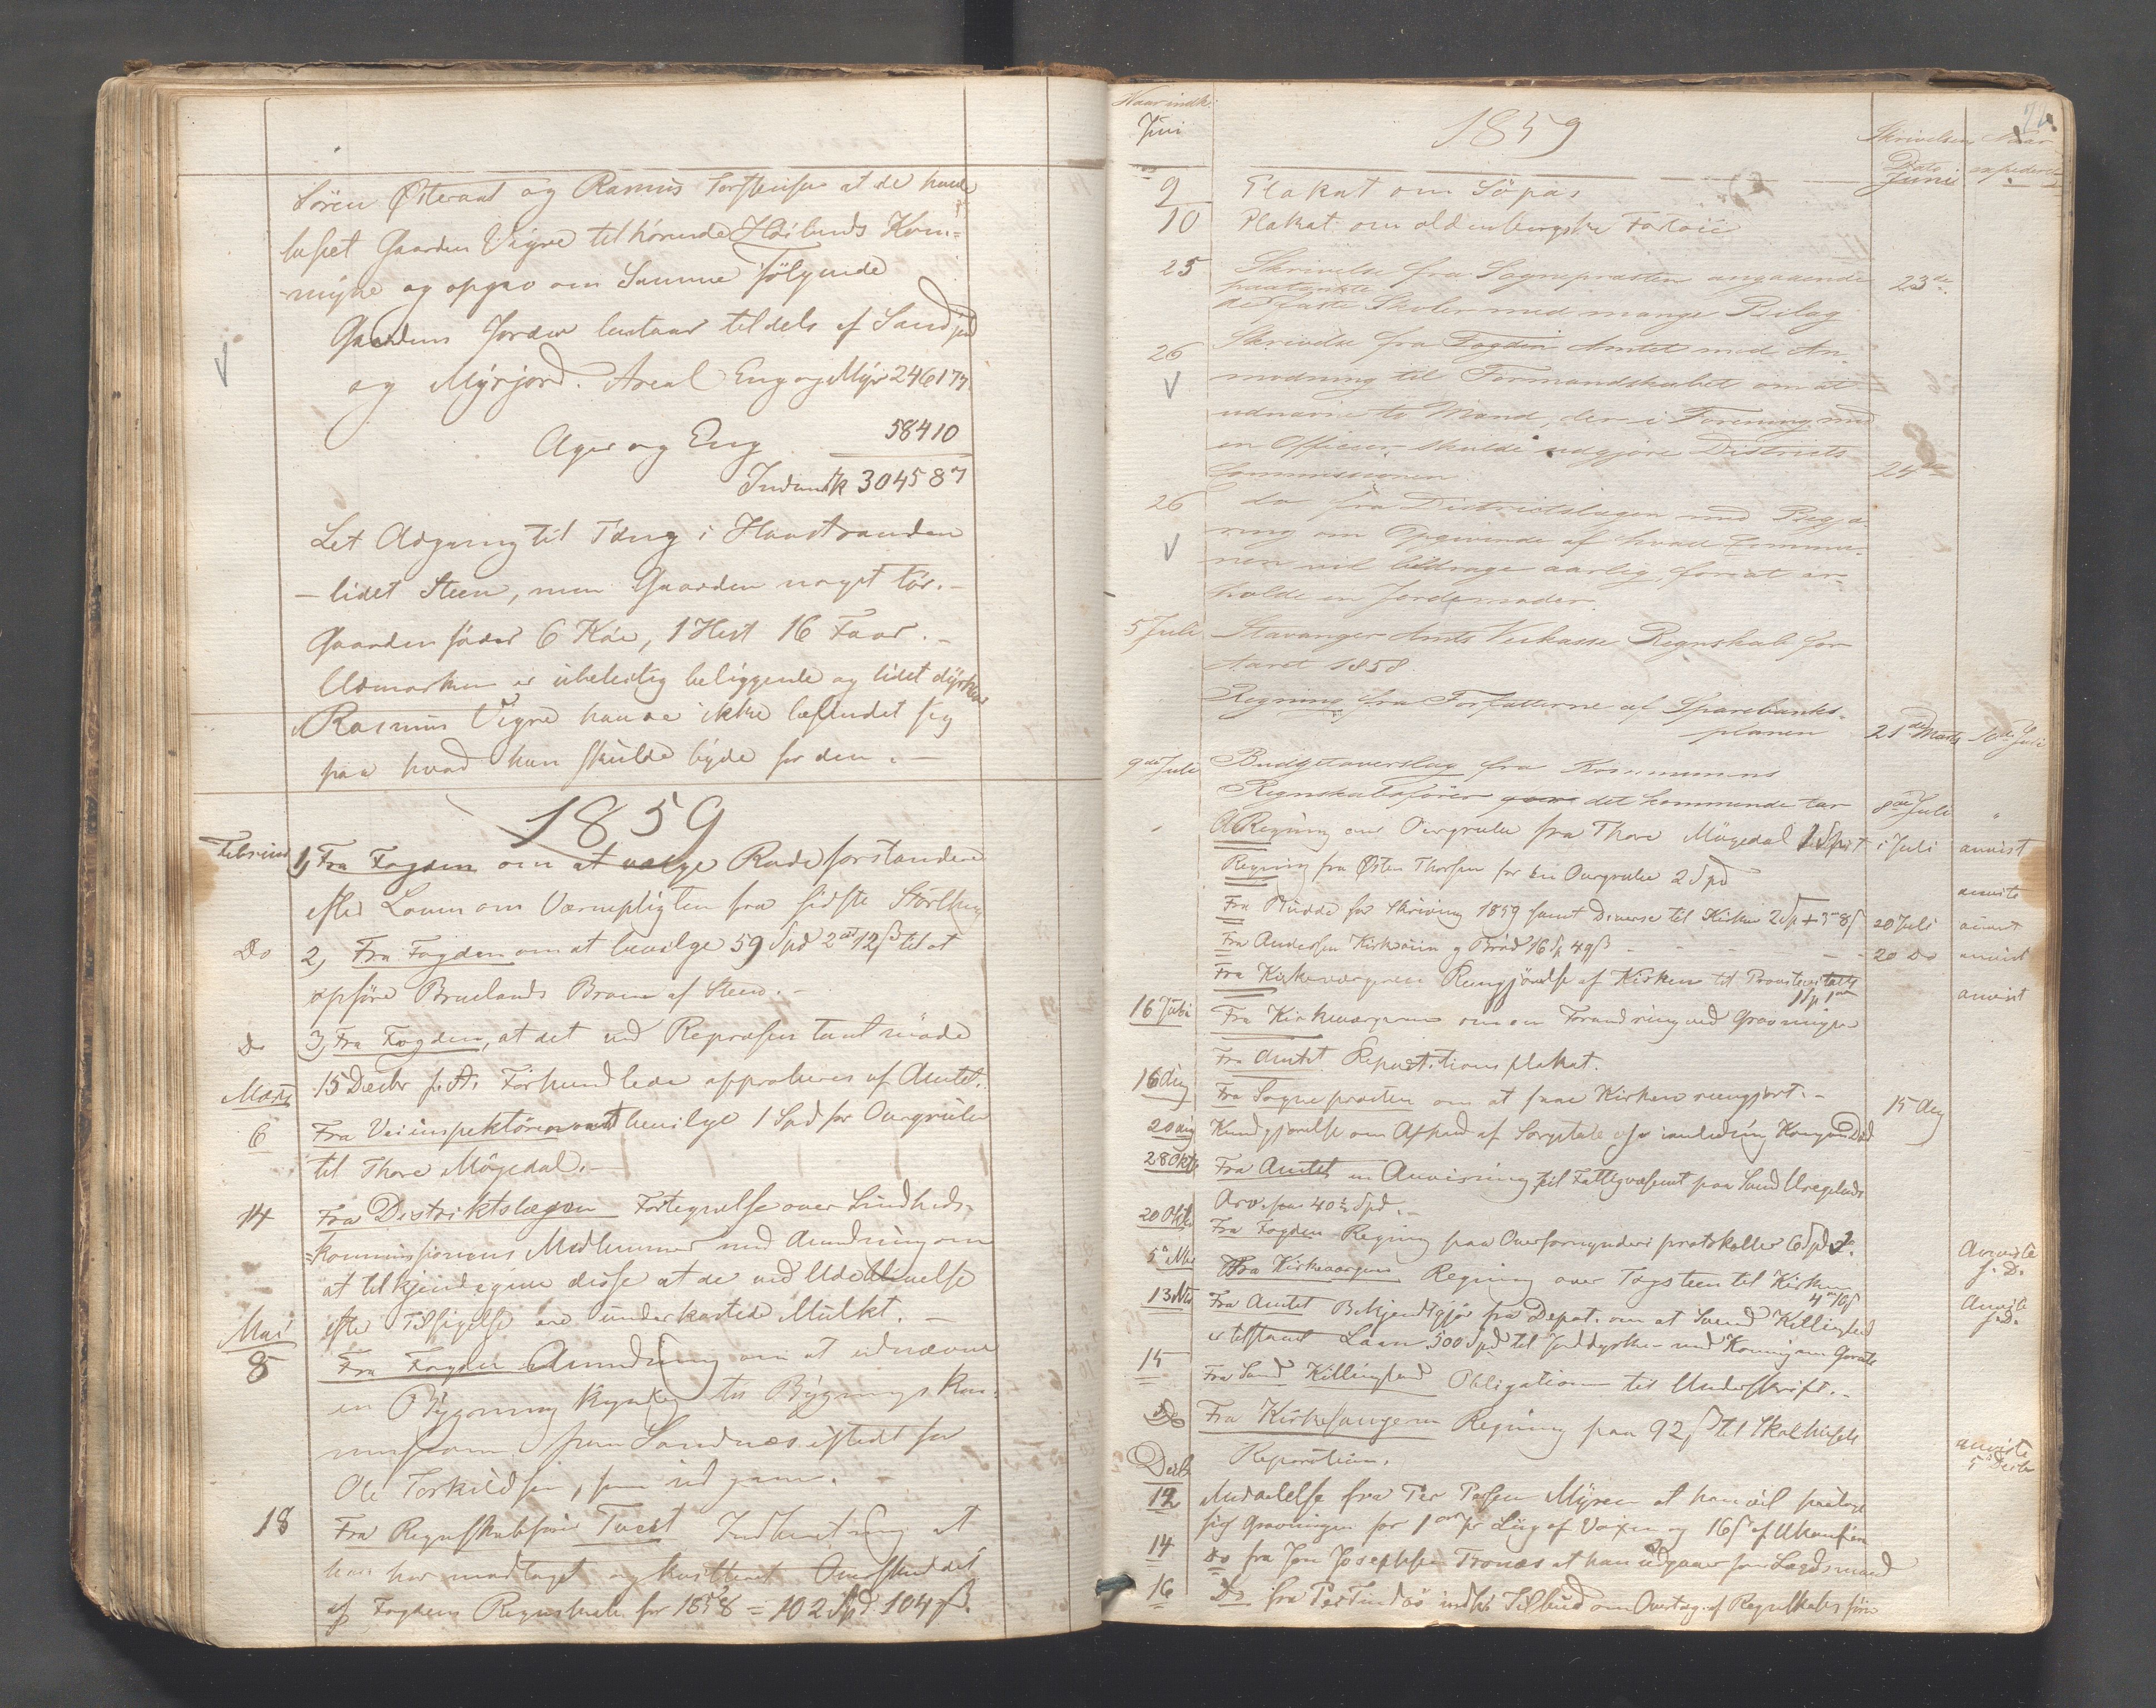 Sören Østeraat og Rasmus Torstensen at de havde
Gaarden Vigre tilhørende Høilands Kom-
-mune og opgav om Samme Følgende
Gaardens Jorder bestaar tildels af Sandjord
og Myrjord. Areal Eng og Myr 246177
Ager og Eng 58410
304587
Let Adgang til Tang i Havstranden
- lidet Steen, men Gaarden noget tör. -
Gaarden föder 6 Köer, 1 Hest 16 Faar. -
Udmarken er ubeleilig beliggende og lidet dyrkbar
Rasmus Vigre havde ikke besindet sig
paa hvad han skulde byde for den. -
1859
Februar 1, Fra Fogden om at vælge Rodeforstandere
efter Loven om Værnepligten fra sidste Storthing
Do 2, Fra Fogden om at bevilge 59 Spd 2 ort 12 ß til at
opföre Bruelands Broen af Steen. -
Do 3, Fra Fogden, at det ved Repræsentantmöde
15 Decbr f. A. Forhandlede approberes af Amtet.
Marts
6 Fra Veiinspektören at bevilge 1 Spd for Ourgrube
til Thore Mögedal. -
14 Fra Distriktslægen Fortegnelse over Sundheds-
-kommissionens Medlemmer med Anmodning om
at tilkjendegive disse at de ved Udeblivelse
efter Tilsigelse ere underkastede Mulkt. -
Mai
8 Fra Fogden Anmodning om at udnævne
en Bygningskyndig til Bygningskom-
mission paa Sandnæs istedet for
Ole Torkildsen, som udgaar.
18 Fra Regnskabsförer Tveit Indberetning at
han har modtaget og Overskuddet
af Fogdens Regnskab for 1858 = 102 Spd 104 ß.
Naar indk:
Juni
1859
Skrivelsens Dato Juni
Naar expederet
9 Plakat om Söpas
10 Plakat om oldenborgske Fartöier
25 Skrivelse fra Sognepræsten angaaende 23de
paatænkte
de faste Skoler med mange Bilag
26 Skrivelse fra Fogden Amtet med An-
modning til Formandskabet om at
udnævne to Mænd, der i Forening med
en Officier skulde udgjöre Districts
Commissionen 24de
26 do fra Districtslægen med Begjæ-
ring om Opgivende af hvad Commu-
nen vil bidrage aarlig, for at er-
holde en Jordemoder.
5 Juli Stavanger Amts Veikasse Regnskab for
Aaret 1858.
Regning fra Forfatterne af Sparebanks-
planen 21de Marts 10de Juli
9de Juli Budgetoverslag fra Kommunens
Regnskabsförer det kommende Aar 8de Juli "
Regning over Ourgrube fra Thore Mögedal 1 Spd i Juli anvist
Regning fra Østen Thorsen for en Ourgrube 2 Spd anviste
Fra Budde for Skrivning 1859 samt Diverse til Kirken 20 Juli anvist
Fra Andersen Kirkeviin og Bröd 16 Sp 49 ß - - - 20 Do anvist
Fra Kirkeværgeren Rengjörelse af Kirken til Provstevisitats
1 Sp 1 ort anvist
16 Juli Fra Kirkeværgeren om en Forandring ved Gravningen
Fra Amtet Repartitions plakat.
16 Aug Fra Sognepræsten om at faae Kirken rengjort. - 15 Aug
20 Aug Kundgjörelse om Afhold af Sörgetale i anledning Kongens Död
28 Okt Fra Amtet en Anvisning til Fattigvæsenet paa Svend
Arv. paa 40 Spd. -
20 Okt Fra Fogden Regning paa Overformynderi protokoller 6 Spd Anviste
f. D.
5 Nov Fra Kirkeværgeren Regning over Tagsteen til Kirken
4 ort 16 ß Anviste
f. D.
13 Nov Fra Amtet Bekjendtgjör fra Depat. om at Svend Killingland
er tilstaaet Laan 500 Spd til Jorddyrkn-
15 Fra Svend Killingland Obligation til Underskrift. -
Do Fra Kirkesangeren Regning paa 92 ß til Skolehusets
Reparation. anviste
5 Decbr
Decbr
12 Meddelelse fra Per Myren at han vil paatage
sig Gravningen for 1 ort pr Liig af Voxen og 16 ß af Ukonfirm
14 Do fra Jon Josephsen Tronæs at han udgaaer som Lægdsmand
16 Do fra Per Tilbud om Overtag. af Regnskabsförer